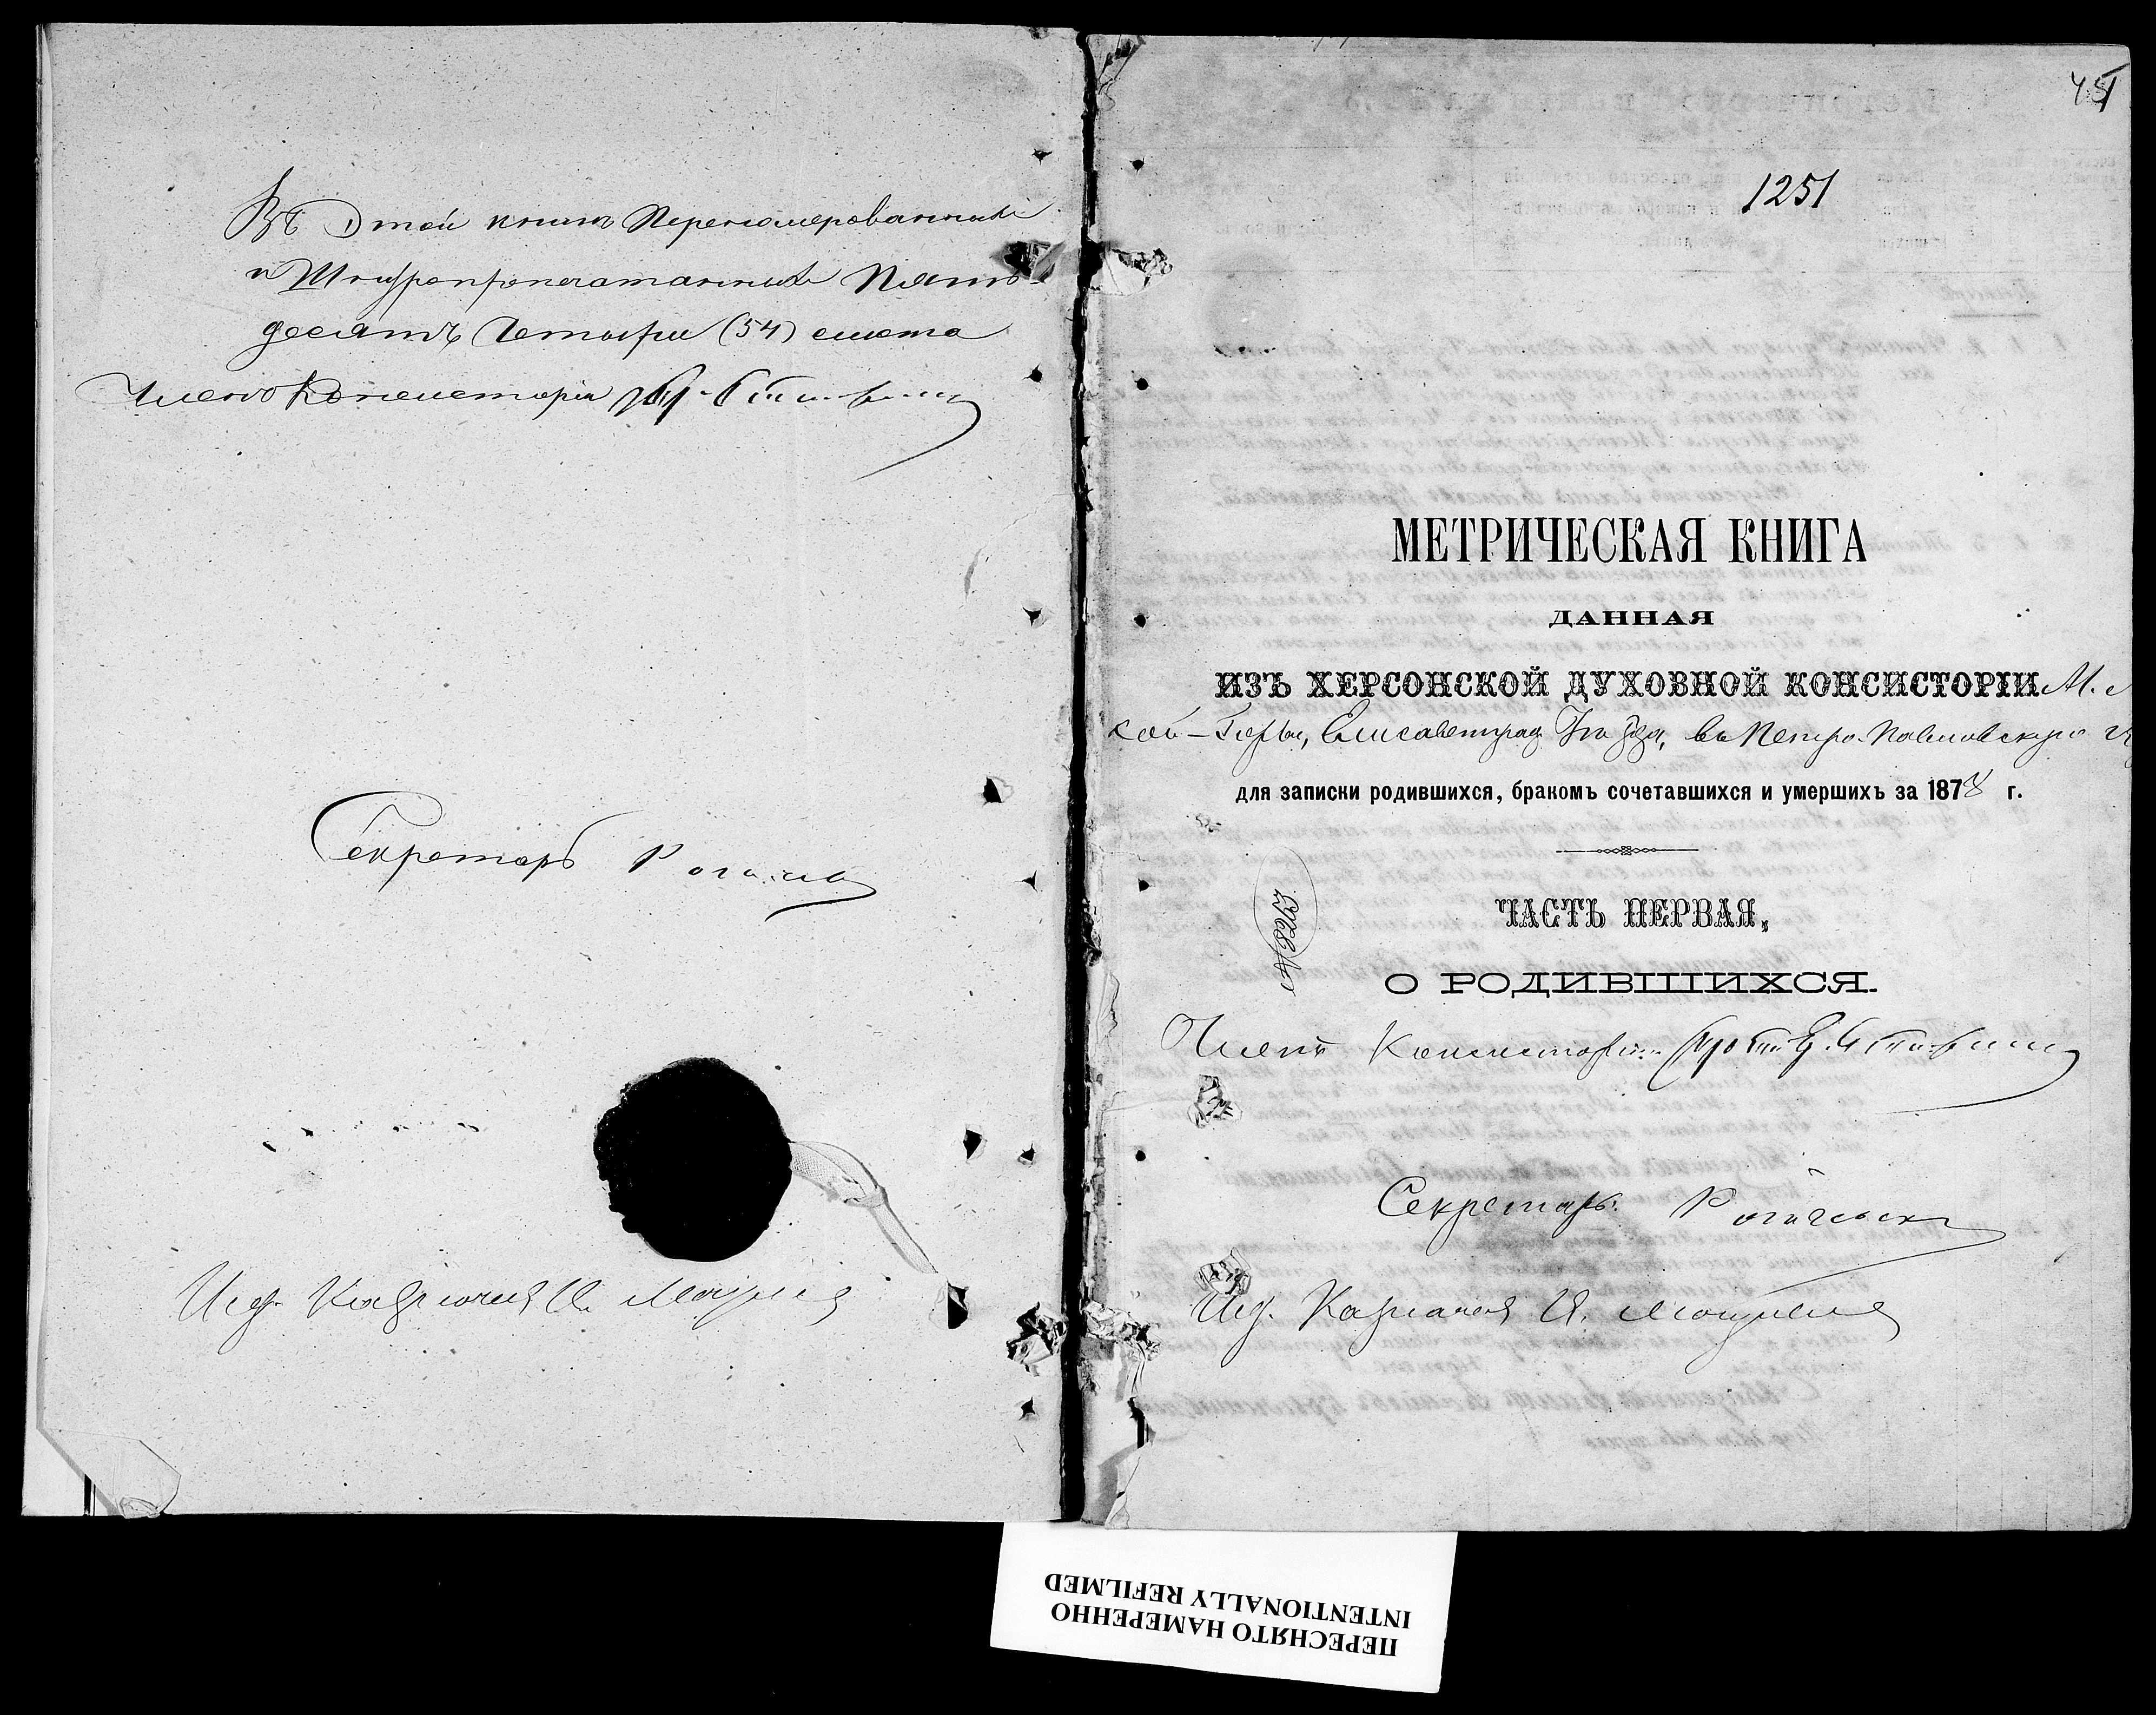 Въ Этой книгѣ Перенумерованныхъ
и Шнуропропечатанныхъ Пять-
десятъ Четыри (54) листа
Членъ Консисторіи
Секретарь
Исд. Казначея И.
1251
МЕТРИЧЕСКАЯ КНИГА
ДАННАЯ
ИЗЪ ХЕРСОНСКОЙ ДУХОВНОЙ КОНСИСТОРІИ М.
Елисаветград Уѣзда, въ Петро-Павловскую
для записки родившихся, бракомъ сочетавшихся и умершихъ за 1878 г.
№ 8253
ЧАСТЬ ПЕРВАЯ,
О РОДИВШИХСЯ.
Членъ Консисторіи
Секретарь
Исд. Казначея И.
ПЕРЕСНЯТО НАМЕРЕННО
INTENTIONALLY REFILMED